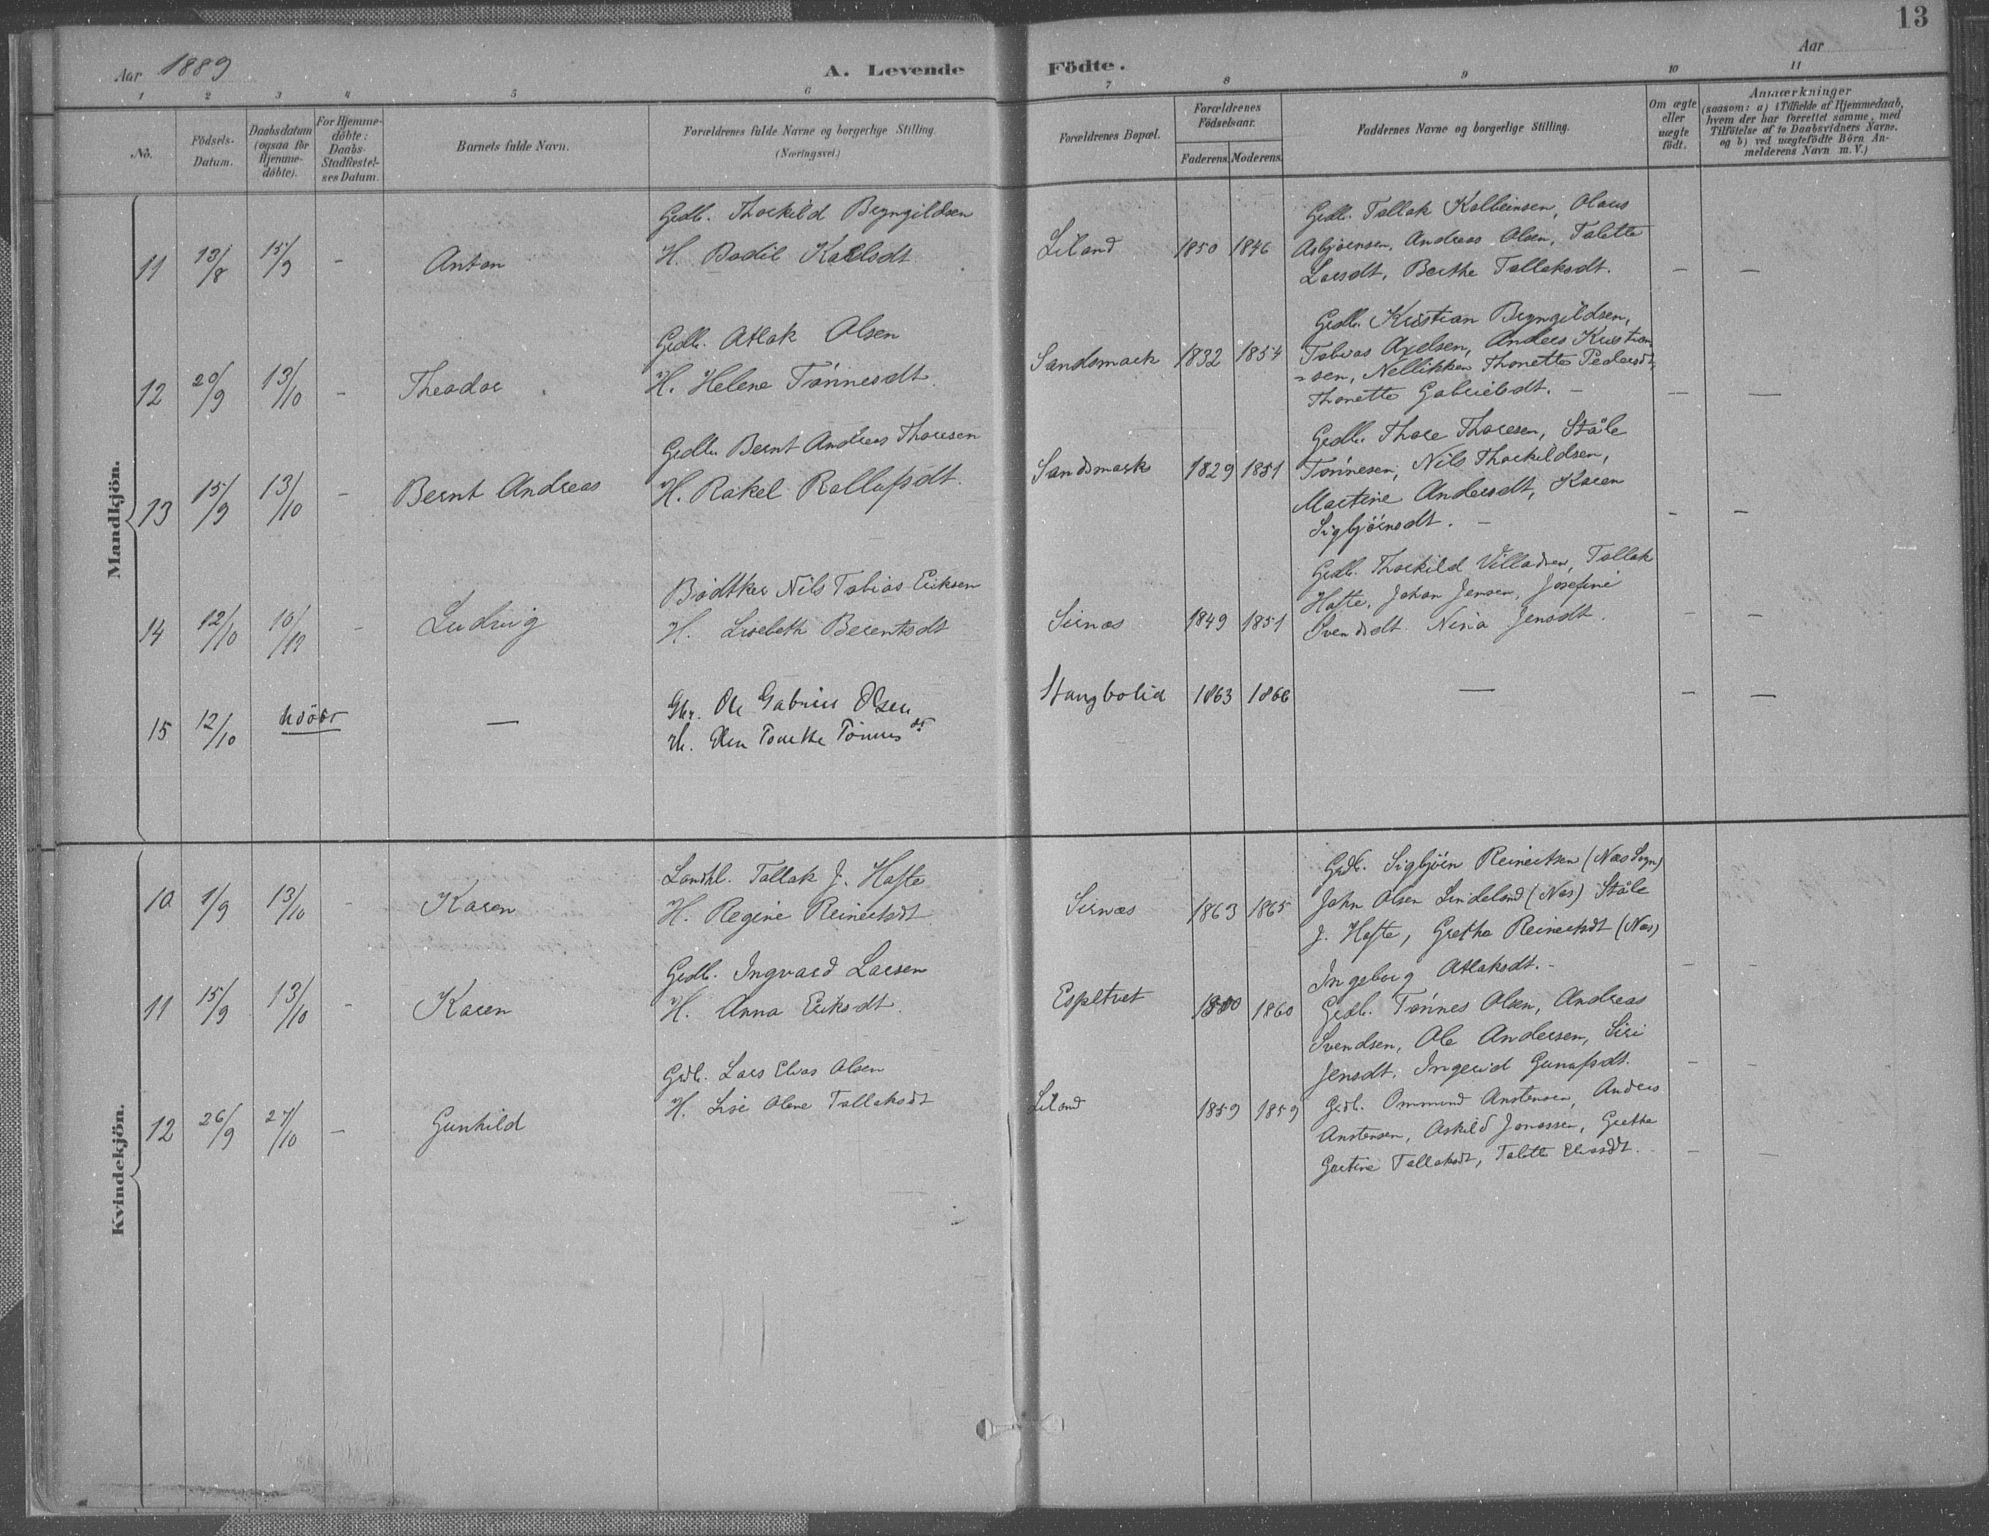 13
Aar 1889
A. Levende Födte.
Aar
1 2 3 4 5 6 7 8 9 10 11
No.
Födsels-Datum.
Daabsdatum (ogsaa for Hjemmedöbte).
For Hjemmedöbte: Daabs-Stadfæstelses Datum.
Barnets fulde Navn.
Forældrenes fulde Navne og borgerlige Stilling.
(Næringsvei.)
Forældrenes Bopæl.
Forældrenes Födselsaar.
Faderens. Moderens.
Faddernes Navne og borgerlige Stilling.
Om ægte eller uægte födt.
Anmærkninger
(saasom: a) i Tilfælde af Hjemmedaab, hvem der har forrettet samme, med Tilföielse af to Daabsvidners Navne. og b) ved uægtefödte Börn Anmelderens Navn m. V.)
Mandkjön.
11 13/8 15/9 - Anton
Gedb. Thorkild Bryngildsen
H. Bodil Karlsdt
Liland 1850 1846
Gedb. Tallak Kolbeinsen, Olaus
Asbjørnsen, Andreas Olsen, Talette
Larsdt, Berthe Tallaksdt. — —
12 20/9 13/10 - Theodor
Gedb. Atlak Olsen
H. Helene Tønnesdt.
Sandsmark 1832 1854
Gedb. Kristian Bryngildsen,
Tobias Axelsen, Anders Kristian
=sen, Nellikken Thonette Pedersdt,
Thonette Gabrielsdt. — — —
13 15/9 13/10 - Bernt Andreas
Gedb. Bernt Andreas Thoresen
H. Rakel Rollafsdt.
Sandsmark 1829 1851
Gedb. Thore Thoresen, Ståle
Tønnesen, Nils Thorkildsen,
Martine Andersdt, Karen
Sigbjörnsdt. — — —
14 12/10 10/12 - Ludvig
Bödtker Nils Tobias Eriksen
H. Lisebeth Berentsdt
Sirnæs 1849 1851
Gedb. Thorkild Villadsen, Tallak
Hafte, Johan Jensen, Josefine
Svendsdt. Nina Jensdt. — —
15 12/10 udöbt —
Gbr. Ole Gabriel Olsen
H. Elen Tonette Tönnesdt
Stangbolia 1863 1866 — — —
Kvindekjön.
10 1/9 13/10 - Karen
Landhl. Tallak J. Hafte
H. Regine Reinertsdt
Sirnæs 1863 1865
Gedb. Sigbjörn Reinertsen (Næs Sogn)
John Olsen Lindeland (Næs) Ståle
J. Hafte, Grethe Reinertsdt (Næs)
Ingeborg Atlaksdt. - — —
11 15/9 13/10 - Karen
Gedb. Ingvard Larsen
H. Anna Eriksdt.
Espetvet 1860
Gedb. Tønnes Olsen, Andreas
Svendsen, Ole Andersen, Siri
Jensdt, Ingerid Gunafsdt. — —
12 26/9 27/10 - Gunhild
Gedb. Lars Elias Olsen
H. Lise Olene Tallaksdt
Liland 1859 1859
Gedb. Ommund Anstensen, Anders
Anstensen, Askild Jonassen, Grethe
Gurtine Tallaksdt, Talette Eliasdt. — —